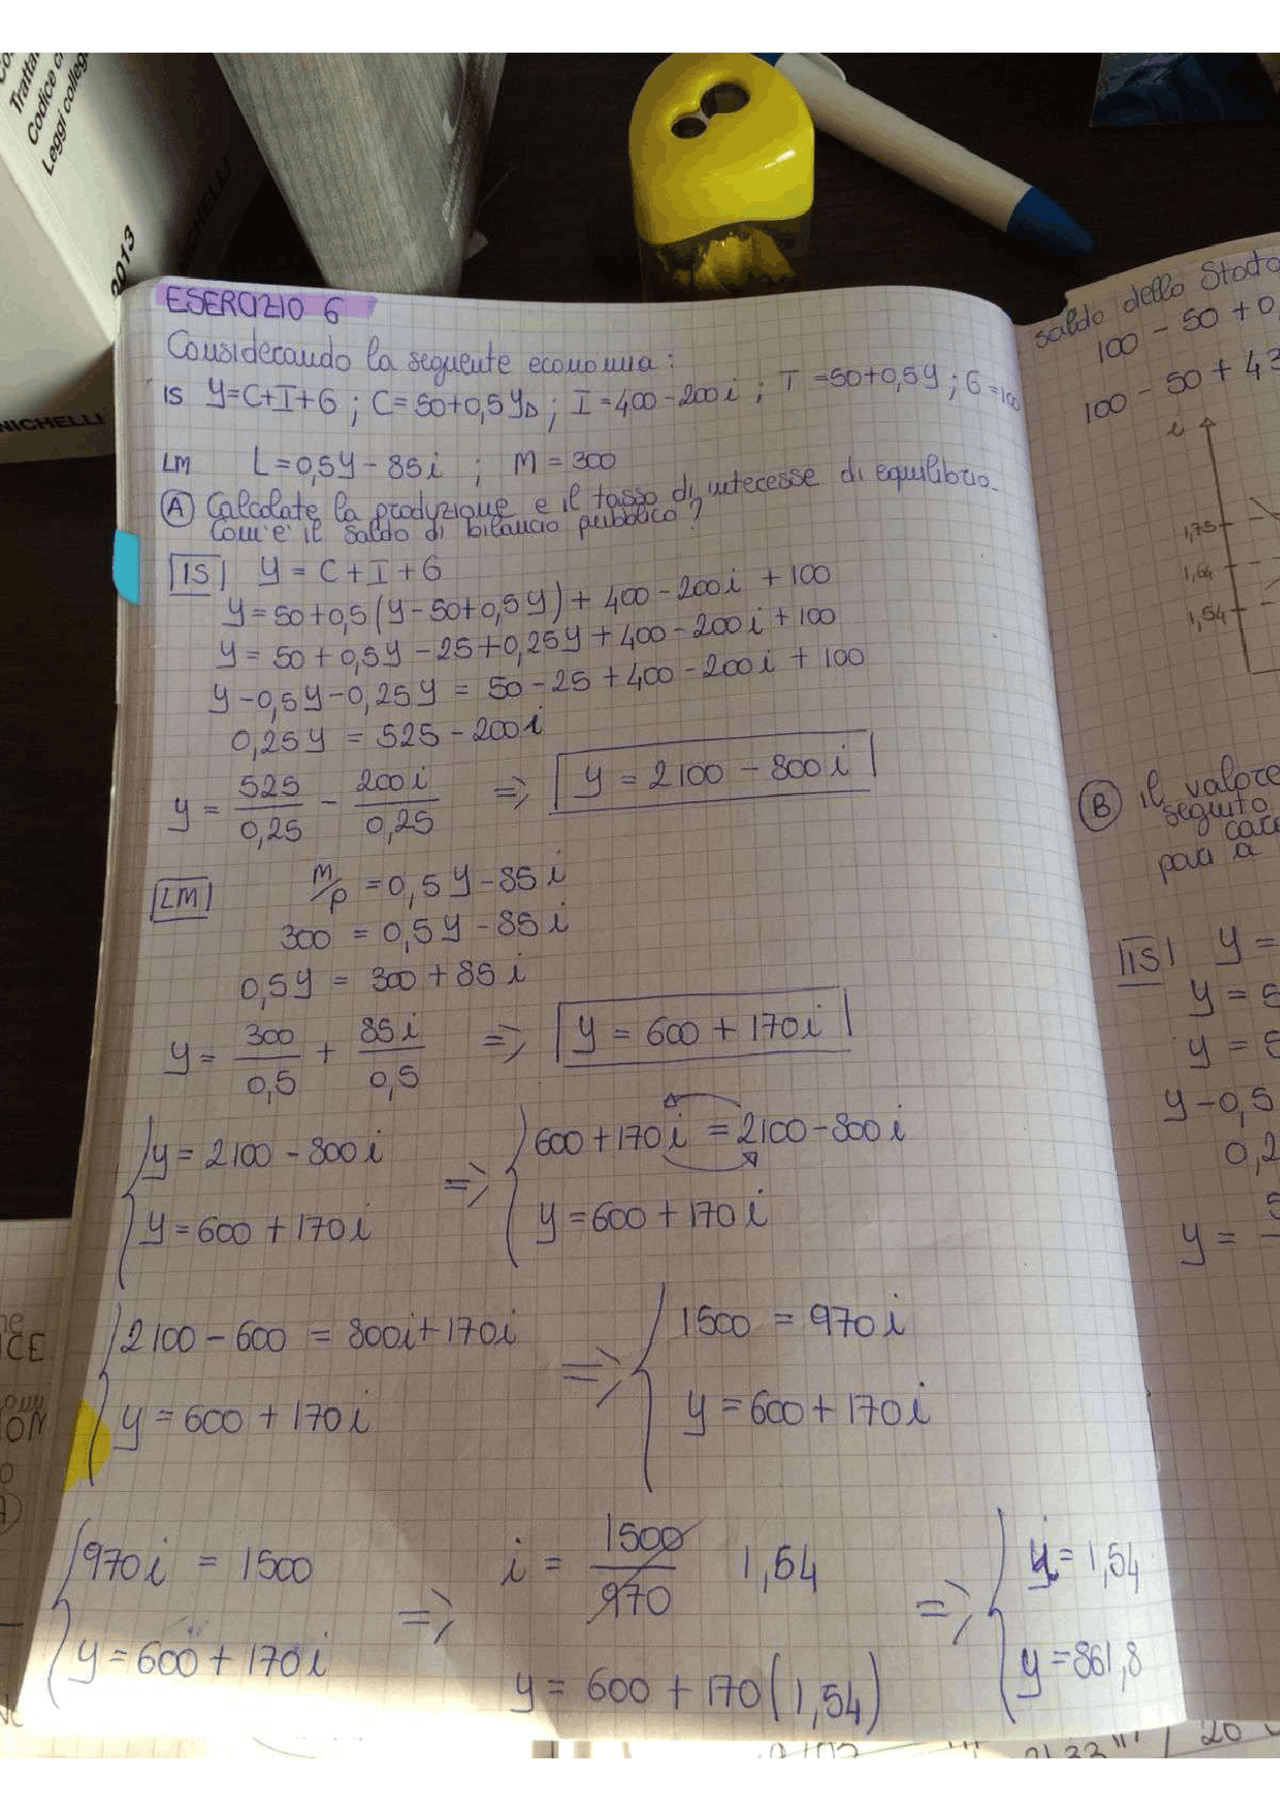 Trattat
Codice c
Leggi colleg
2013
NICHELLI
NICHELLI
ESERCIZIO 6
Considerando la seguente economia:
IS Y=C+I+G ; C=50+0,5YD ; I=400-200i ; T=50+0,5Y ; G=100
LM L=0,5Y-85i ; M=300
(A) Calcolate la produzione e il tasso di interesse di equilibrio.
Com'è il saldo di bilancio pubblico?
IS Y = C+I+G
Y=50+0,5(Y-50+0,5Y)+400-200i+100
Y=50+0,5Y-25+0,25Y+400-200i+100
Y-0,5Y-0,25Y = 50-25+400-200i+100
0,25Y = 525-200i
Y = 525/0,25 - 200i/0,25 => Y = 2100-800i
LM M/P = 0,5Y-85i
300 = 0,5Y-85i
0,5Y = 300+85i
Y = 300/0,5 + 85i/0,5 => Y = 600+170i
Y=2100-800i => 600+170i=2100-800i
Y=600+170i Y=600+170i
2100-600=800i+170i => 1500=970i
Y=600+170i Y=600+170i
970i=1500 => i = 1500/970 1,54 => i=1,54
Y=600+170i Y=600+170(1,54) Y=861,8
saldo dello Stato
100-50+0,
100-50+43
i
1,75
1,64
1,54
(B) il valore
seguito
pari a
IS Y =
Y = 5
Y = 5
Y-0,5
0,2
Y =
CE
ON